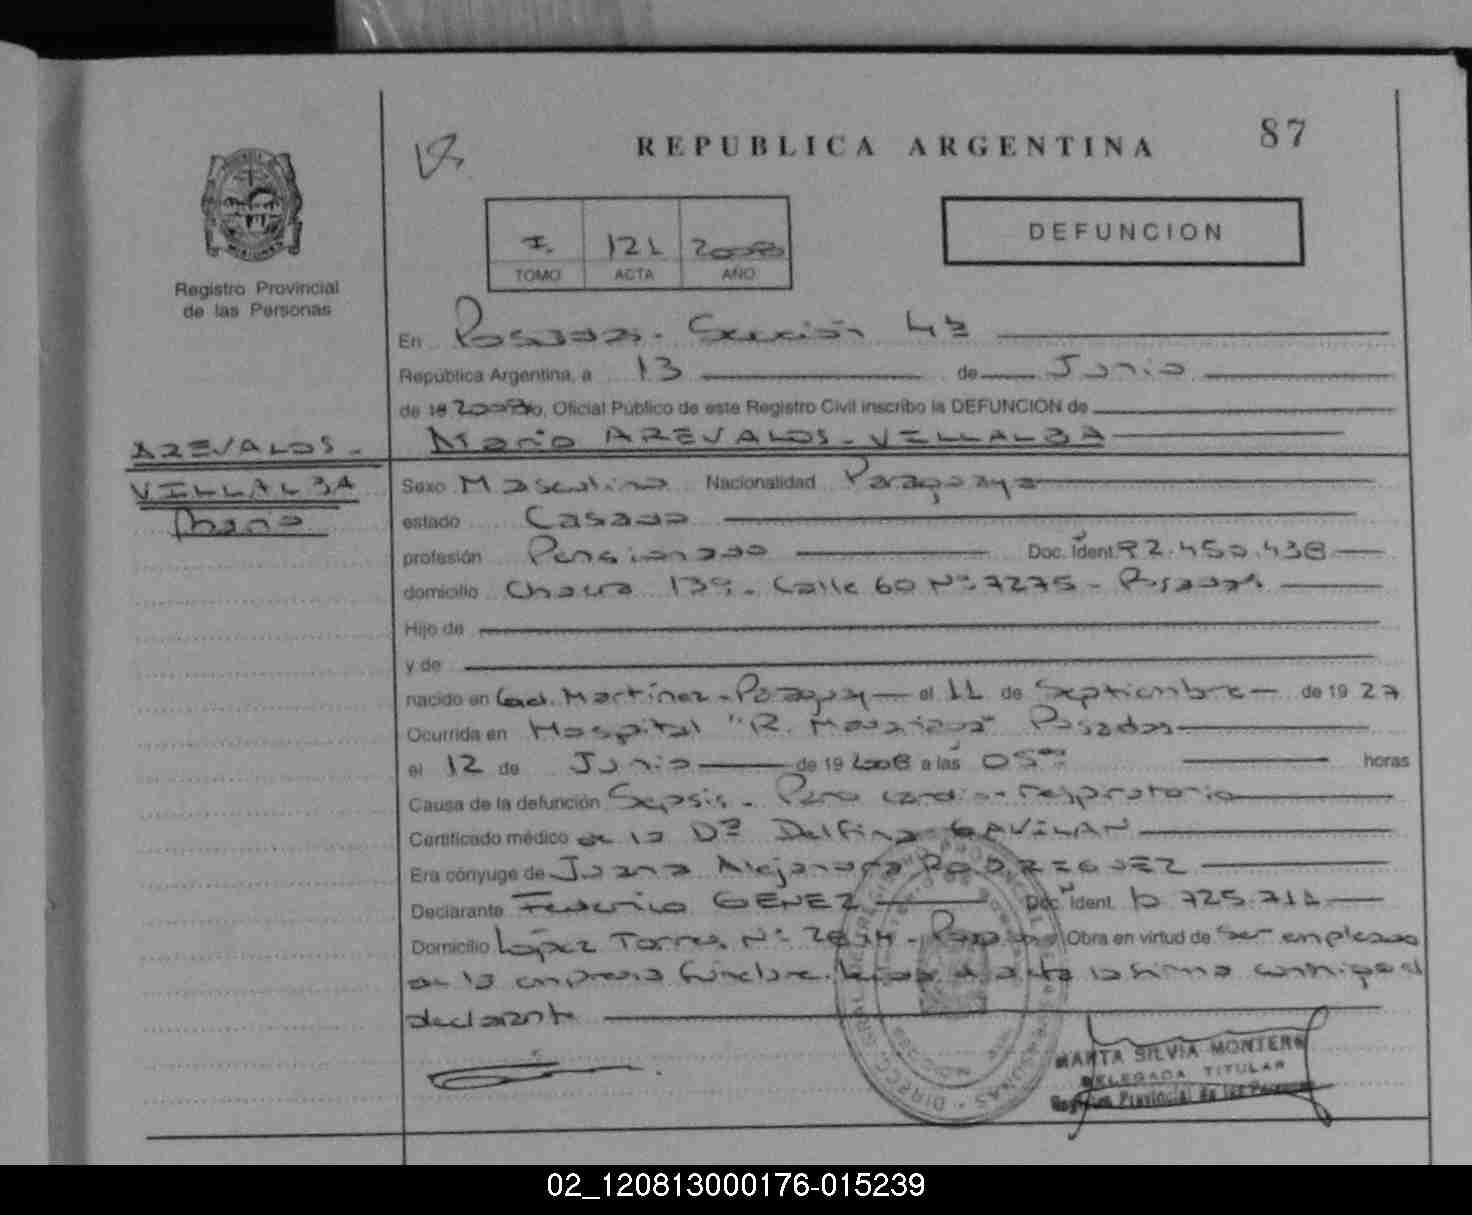 87
REPUBLICA ARGENTINA
DEFUNCION
I. 121 2008
TOMO ACTA AÑO
Registro Provincial
de las Personas
En Posadas - Sección 4ª
República Argentina, a 13 de Junio
de 19 2008 yo, Oficial Público de este Registro Civil inscribo la DEFUNCION de
Mario AREVALOS - VILLALBA
AREVALOS -
VILLALBA
Mario
Sexo Masculino Nacionalidad Paraguaya
estado Casado
profesión Pensionado Doc. Ident. 92.450.438
domicilio Chacra 139 - Calle 60 Nº 7275 - Posadas
Hijo de
y de
nacido en Gral. Martínez - Paraguay el 11 de Septiembre de 19 27
Ocurrida en Hospital "R. Madariaga" Posadas
el 12 de Junio de 19 2008 a las 05 horas
Causa de la defunción Sepsis - Paro cardio-respiratorio
Certificado médico de la Dª Delfina GAVILAN
Era cónyuge de Juana Alejandra RODRIGUEZ
Declarante Federico GENEZ Doc. Ident. 725.711
Domicilio López Torres Nº 2614 - Obra en virtud de ser empleado
de la empresa fúnebre. Leída el acta la firma conmigo el
declarante
MARTA SILVIA MONTERO
DELEGADA TITULAR
Registro Provincial de las Personas
02_120813000176-015239